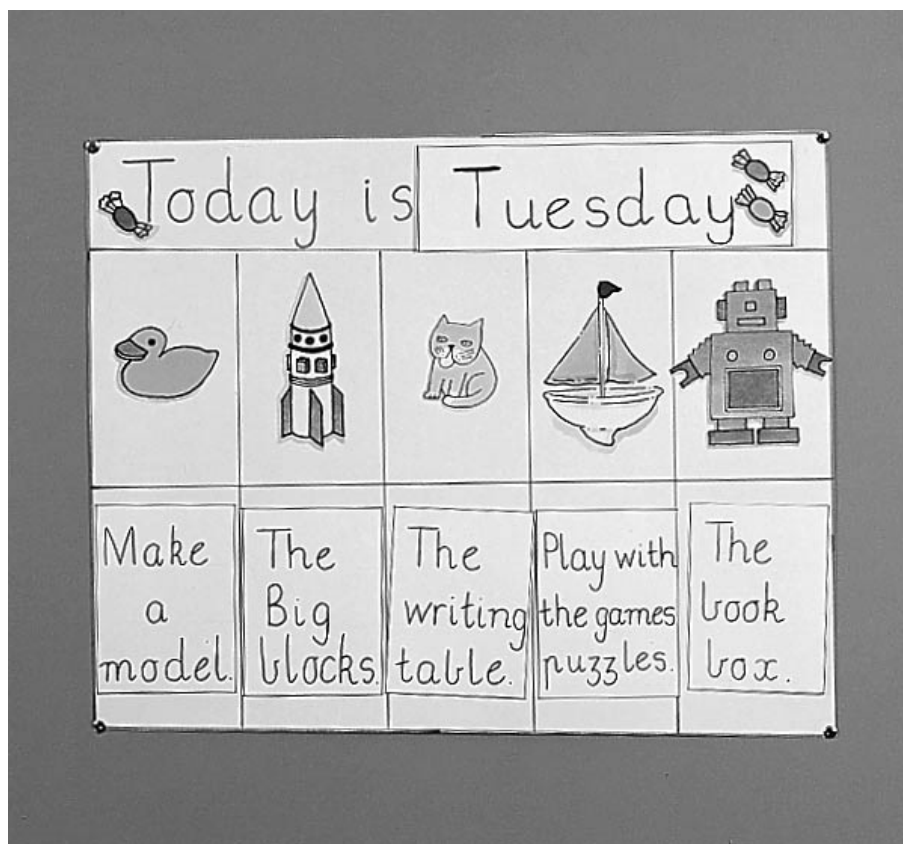 Today is Tuesday
Make
a
model.
The
Big
blocks.
The
writing
table.
Play with
the games
puzzles.
The
book
box.